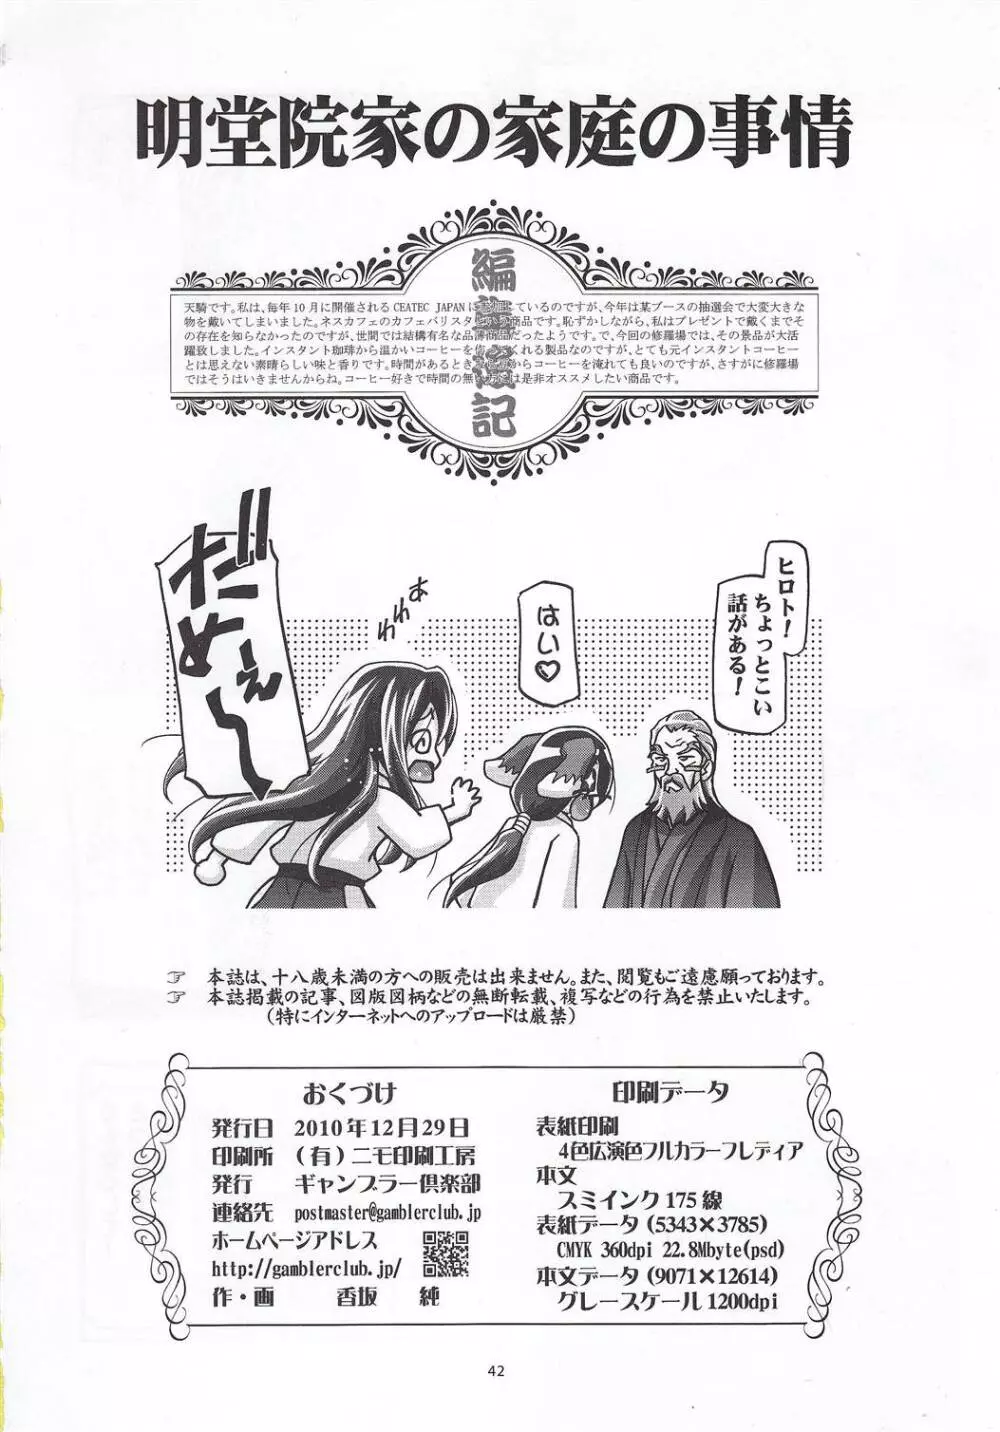 明堂院家の家庭の事情
編集後記
天騎です。私は、毎年10月に開催されるCEATEC JAPANに
ているのですが、今年は某ブースの抽選会で大変大きな
物を戴いてしまいました。ネスカフェのカフェバリスタ
商品です。恥ずかしながら、私はプレゼントで戴くまでそ
の存在を知らなかったのですが、世間では結構有名な品
だったようです。で、今回の修羅場では、その景品が大活
躍致しました。インスタント珈琲から温かいコーヒーを
くれる製品なのですが、とても元インスタントコーヒー
とは思えない素晴らしい味と香りです。時間があるとき
からコーヒーを淹れても良いのですが、さすがに修羅場
ではそうはいきませんからね。コーヒー好きで時間の無い方
は是非オススメしたい商品です。
ヒロト！
ちょっとこい
話がある！
はい♡
わわあ
だめぇ～!!
☞ 本誌は、十八歳未満の方への販売は出来ません。また、閲覧もご遠慮願っております。
☞ 本誌掲載の記事、図版図柄などの無断転載、複写などの行為を禁止いたします。
（特にインターネットへのアップロードは厳禁）
おくづけ
発行日 2010年12月29日
印刷所 （有）ニモ印刷工房
発行 ギャンブラー倶楽部
連絡先 postmaster@gamblerclub.jp
ホームページアドレス
http://gamblerclub.jp/
作・画 香坂 純
印刷データ
表紙印刷
4色広演色フルカラーフレディア
本文
スミインク175線
表紙データ（5343×3785）
CMYK 360dpi 22.8Mbyte(psd)
本文データ（9071×12614）
グレースケール1200dpi
42